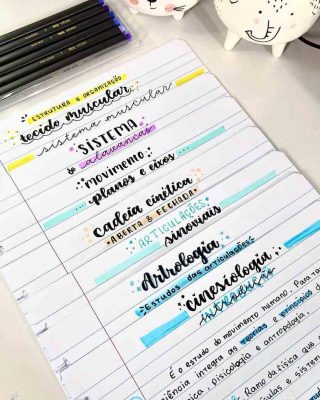 ESTRUTURA E ORGANIZAÇÃO
tecido muscular
sistema muscular
SISTEMA
alavancas
MOVIMENTO
planos e eixos
cadeia cinética
ABERTA & FECHADA
ARTICULAÇÕES
sinoviais
Artrologia
Estudos das articulações
cinesiologia
introdução
É o estudo do movimento humano. Para
ciência integra as teorias e princípios
, psicologia e antropologia.
Ramo da física que
e sistem